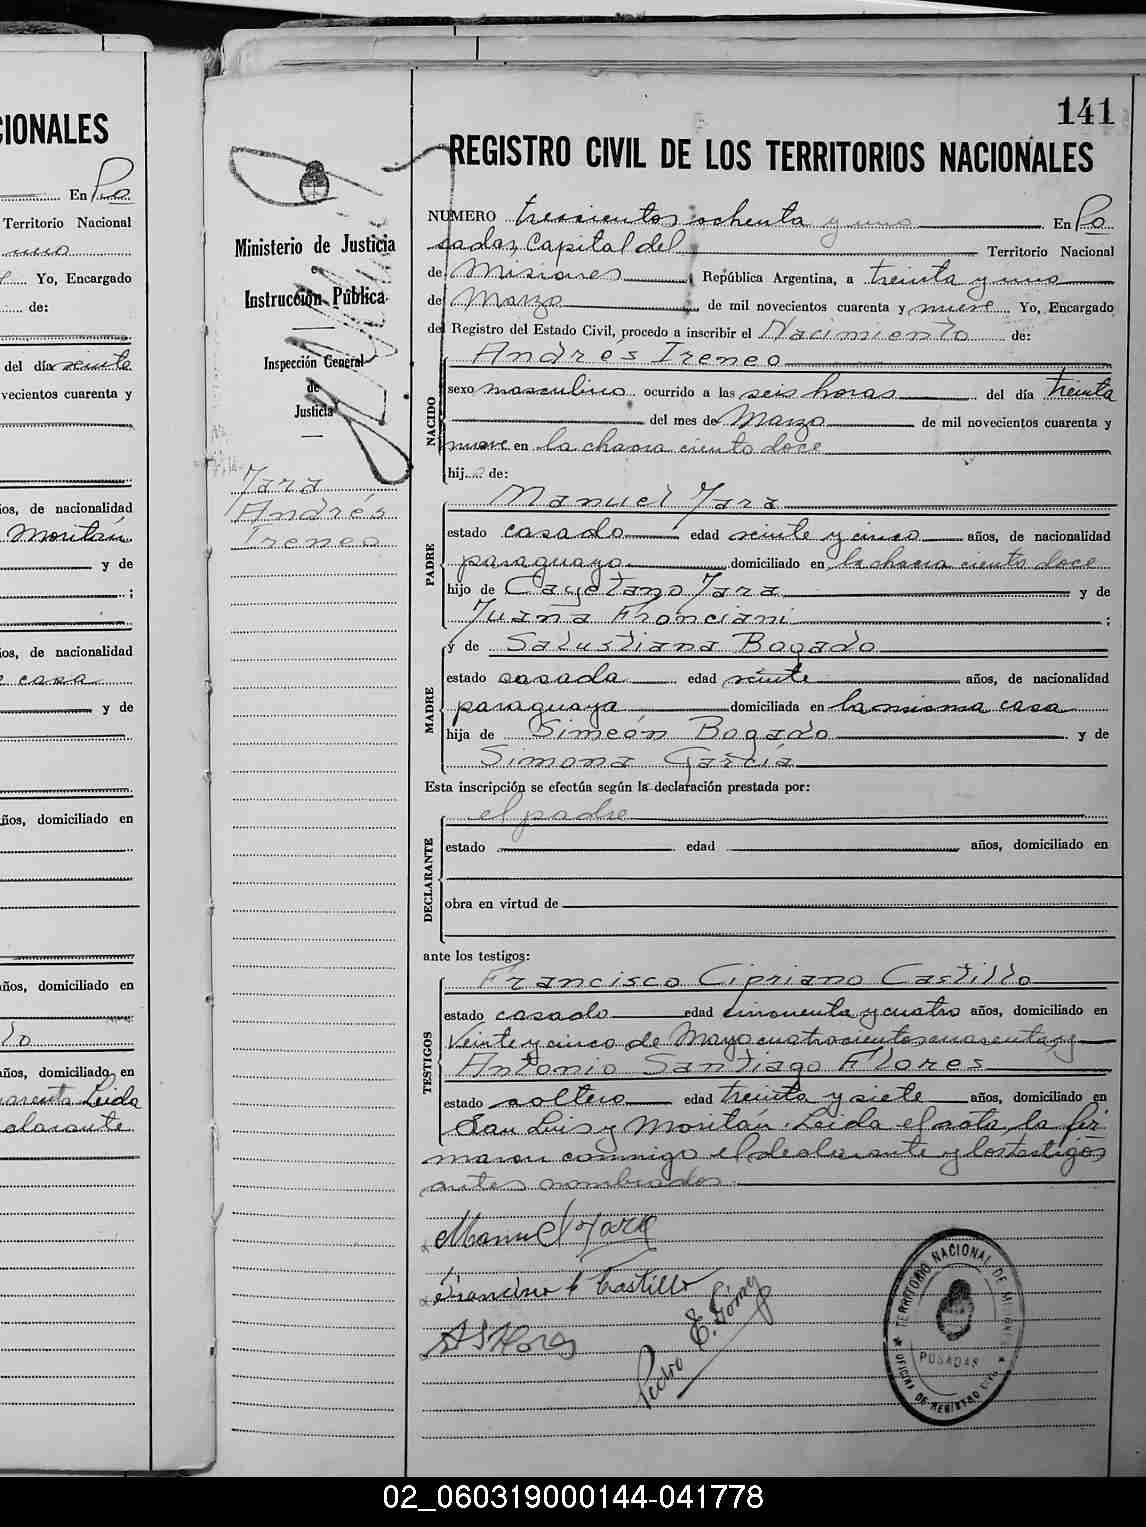 CIONALES
En Po
Territorio Nacional
Yo, Encargado
de:
del día veinte
vecientos cuarenta y
ños, de nacionalidad
Moritán
y de
;
ños, de nacionalidad
e casa
y de
años, domiciliado en
años, domiciliado en
lo
años, domiciliado en
arenta Leida
clarante
141
Ministerio de Justicia
Instrucción Pública
Inspección General
de
Justicia
Jara
Andrés
Ireneo
REGISTRO CIVIL DE LOS TERRITORIOS NACIONALES
NUMERO trescientos ochenta y uno En Po
sadas, Capital del Territorio Nacional
de Misiones República Argentina, a treinta y uno
de Marzo de mil novecientos cuarenta y nueve Yo, Encargado
del Registro del Estado Civil, procedo a inscribir el Nacimiento de:
NACIDO
Andres Ireneo
sexo masculino ocurrido a las seis horas del día treinta
del mes de Marzo de mil novecientos cuarenta y
nueve en la chacra ciento doce
hij o de:
PADRE
Manuel Jara
estado casado edad veinte y cinco años, de nacionalidad
paraguayo domiciliado en la chacra ciento doce
hijo de Cayetano Jara y de
Juana Fronciani ;
MADRE
y de Salustiana Bogado
estado casada edad veinte años, de nacionalidad
paraguaya domiciliada en la misma casa
hija de Simeón Bogado y de
Simona García
Esta inscripción se efectúa según la declaración prestada por:
DECLARANTE
el padre
estado edad años, domiciliado en
obra en virtud de
ante los testigos:
TESTIGOS
Francisco Cipriano Castillo
estado casado edad cincuenta y cuatro años, domiciliado en
Veinte y cinco de Mayo cuatrocientos cuarenta y
Antonio Santiago Flores
estado soltero edad treinta y siete años, domiciliado en
San Luis y Moritán. Leida el acta, la fir
maron conmigo el declarante y los testigos
antes nombrados
Manuel Jara
Francisco C Castillo
A S Flores
Pedro E. Gómez
TERRITORIO NACIONAL DE MISIONES
POSADAS
OFICINA DE REGISTRO CIVIL
02_060319000144-041778